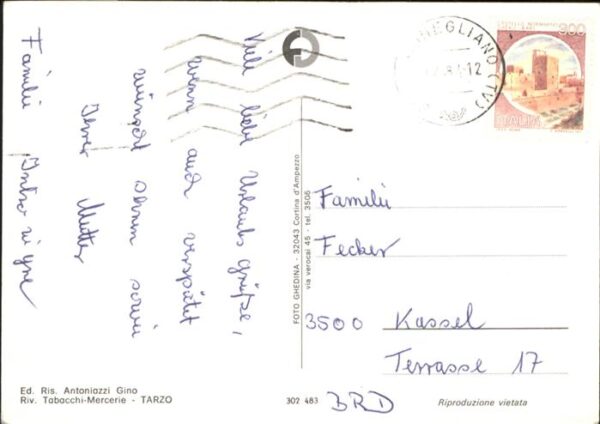 Viele liebe Urlaubsgrüße,
wenn auch verspätet
wünscht Ihnen sowie
Ihrer Mutter
Familie
FOTO GHEDINA - 32043 Cortina d'Ampezzo
via verocai 45 - tel. 3506
EGLIANO (TV)
12
300
ITALIA
Familie
Fecker
3500 Kassel
Terrasse 17
BRD
Ed. Ris. Antoniazzi Gino
Riv. Tabacchi-Mercerie - TARZO
302 483
Riproduzione vietata